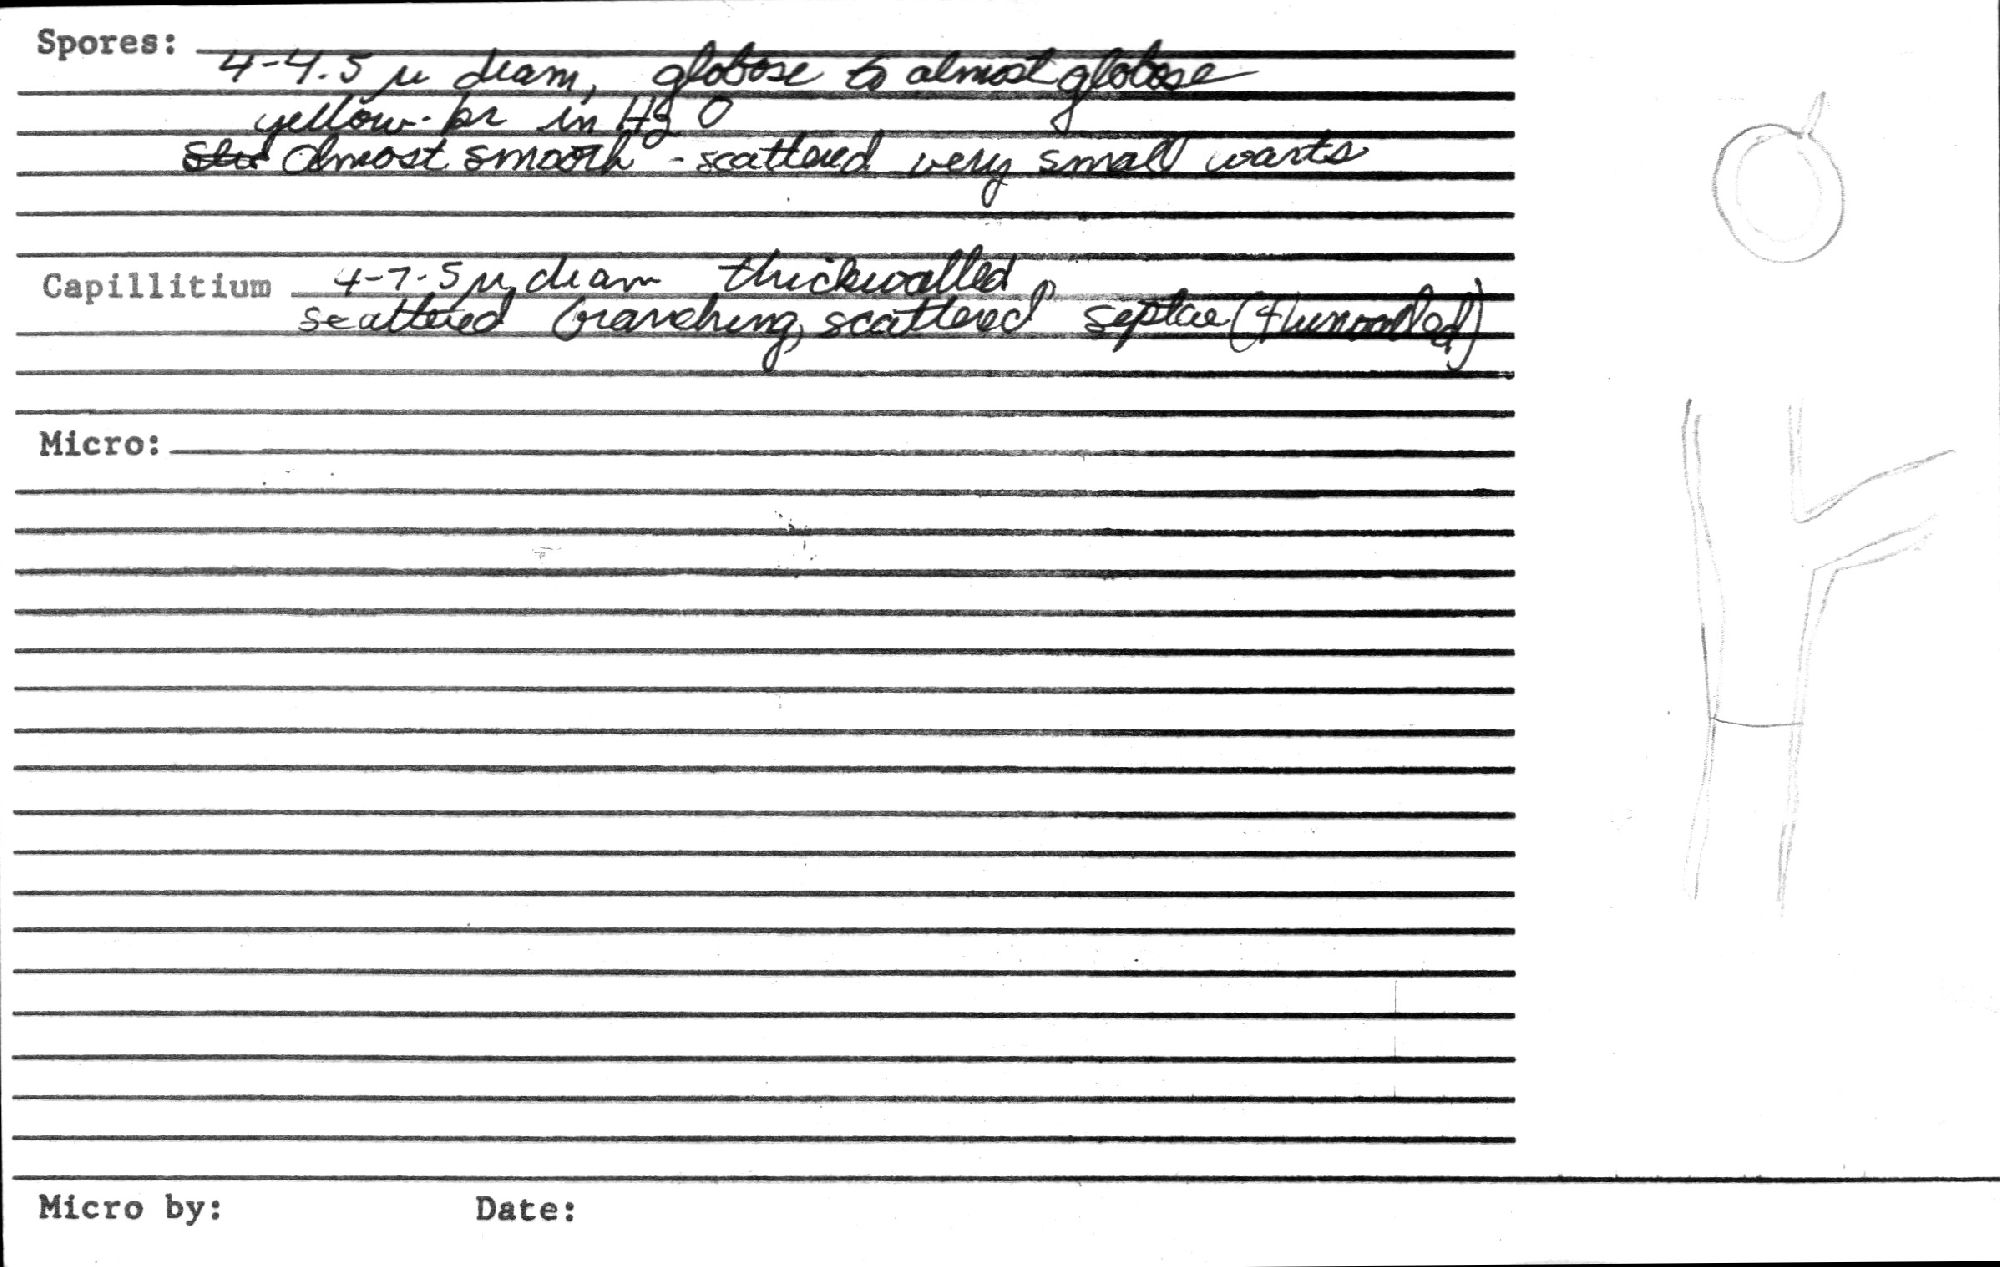 Spores:
4-4.5 µ diam, globose to almost globose
yellow-br in H2O
almost smooth - scattered very small warts
Capillitium 4-7.5 µ diam thickwalled,
scattered branching, scattered septae (thinwalled)
Micro:
Micro by: Date: